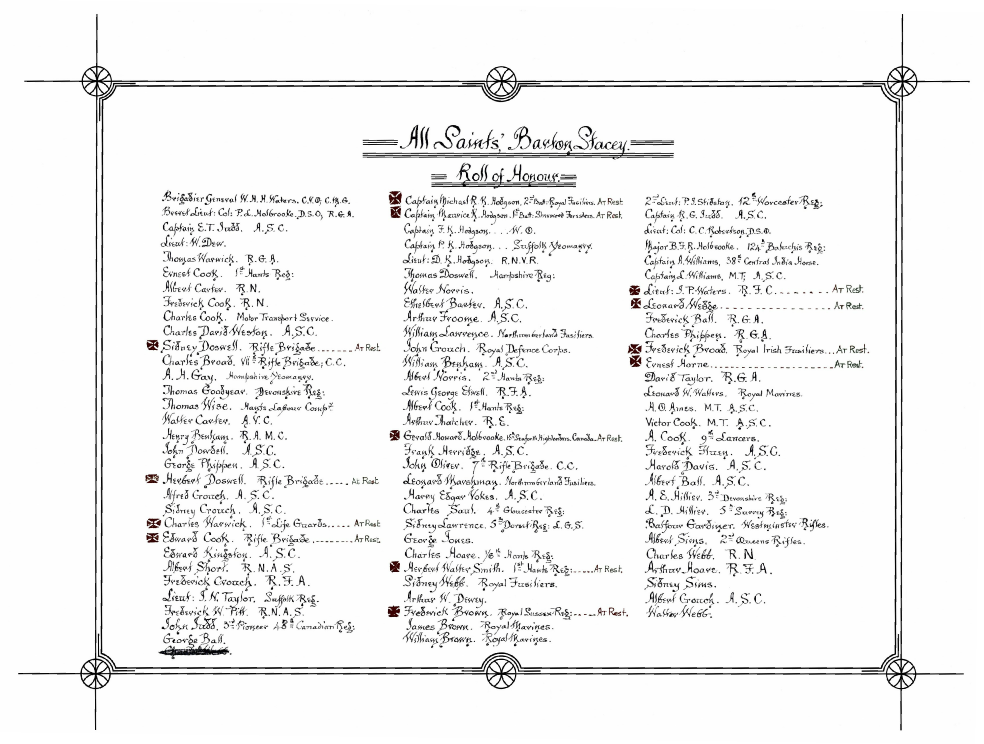 All Saints', Barton Stacey.
Roll of Honour.
Brigadier General W. H. H. Waters. C.V.O; C.M.G.
Brevet Lieut: Col: P. L. Holbrooke. D.S.O; R.G.A.
Captain E.T. Judd. A.S.C.
Lieut: W. Dew.
Thomas Warwick. R.G.A.
Ernest Cook. 1st Hants Reg:
Albert Carter. R.N.
Frederick Cook. R.N.
Charles Cook. Motor Transport Service.
Charles David Weston. A.S.C.
Sidney Doswell. Rifle Brigade. At Rest.
Charles Broad. VIIth Rifle Brigade; C.C.
A. H. Gay. Hampshire Yeomanry.
Thomas Goodyear. Devonshire Reg:
Thomas Wise. Hants Labour Compy
Walter Carter. A.V.C.
Henry Benham. R.A.M.C.
John Dowdell. A.S.C.
George Phippen. A.S.C.
Herbert Doswell. Rifle Brigade. At Rest
Alfred Crouch. A.S.C.
Sidney Crouch. A.S.C.
Charles Warwick. 1st Life Guards. At Rest
Edward Cook. Rifle Brigade. At Rest.
Edward Kingston. A.S.C.
Albert Short. R.N.A.S.
Frederick Crouch. R.F.A.
Lieut: J. N. Taylor. Suffolk Reg:
Frederick W. Pitt. R.N.A.S.
John Judd. 3rd Pioneer 48th Canadian Reg:
George Ball.
Captain Michael R. K. Hodgson. 2nd Batt: Royal Fusiliers. At Rest
Captain Maurice K. Hodgson. 1st Batt: Sherwood Foresters. At Rest.
Captain F. K. Hodgson. . . . W.O.
Captain P. K. Hodgson. . . Suffolk Yeomanry.
Lieut: D. K. Hodgson. R.N.V.R.
Thomas Doswell. Hampshire Reg:
Walter Norris.
Ethelbert Baxter. A.S.C.
Arthur Froome. A.S.C.
William Lawrence. Northumberland Fusiliers.
John Crouch. Royal Defence Corps.
William Benham. A.S.C.
Albert Norris. 2nd Hants Reg:
Lewis George Elwell. R.F.A.
Albert Cook. 1st Hants Reg:
Arthur Thatcher. R.E.
Gerald Howard Holbrooke. 16th Seaforth Highlanders, Canada. At Rest.
Frank Herridge. A.S.C.
John Oliver. 7th Rifle Brigade. C.C.
Leonard Marshman. Northumberland Fusiliers.
Harry Edgar Vokes. A.S.C.
Charles Saul. 4th Gloucester Reg:
Sidney Lawrence. 5th Dorset Reg: L.G.S.
George Jones.
Charles Hoare. 1/6th Hants Reg:
Herbert Walter Smith. 1st Hants Reg: At Rest.
Sidney Webb. Royal Fusiliers.
Arthur W. Dewey.
Frederick Brown. Royal Sussex Reg: At Rest.
James Brown. Royal Marines.
William Brown. Royal Marines.
2nd Lieut: P. J. Shideton. 12th Worcester Reg:
Captain R. G. Judd. A.S.C.
Lieut: Col: C. C. Robertson. D.S.O.
Major B. F. R. Holbrooke. 124th Baluchis Reg:
Captain A. Williams, 38th Central India Horse.
Captain L. Williams, M.T. A.S.C.
Lieut: J. P. Waters. R.F.C. At Rest.
Leonard Wedge. At Rest.
Frederick Ball. R.G.A.
Charles Phippen. R.G.A.
Frederick Broad. Royal Irish Fusiliers. At Rest.
Ernest Horne. At Rest.
David Taylor. R.G.A.
Leonard W. Walters. Royal Marines.
H. O. Aines. M.T. A.S.C.
Victor Cook. M.T. A.S.C.
A. Cook. 9th Lancers.
Frederick Huen. A.S.C.
Harold Davis. A.S.C.
Albert Ball. A.S.C.
A. E. Hillier. 3rd Devonshire Reg:
L. D. Hillier. 5th Surrey Reg:
Balfour Gardiner. Westminster Rifles.
Albert Sims. 2nd Queens Rifles.
Charles Webb. R.N
Arthur Hoare. R.F.A.
Sidney Sims.
Albert Crouch. A.S.C.
Walter Webb.